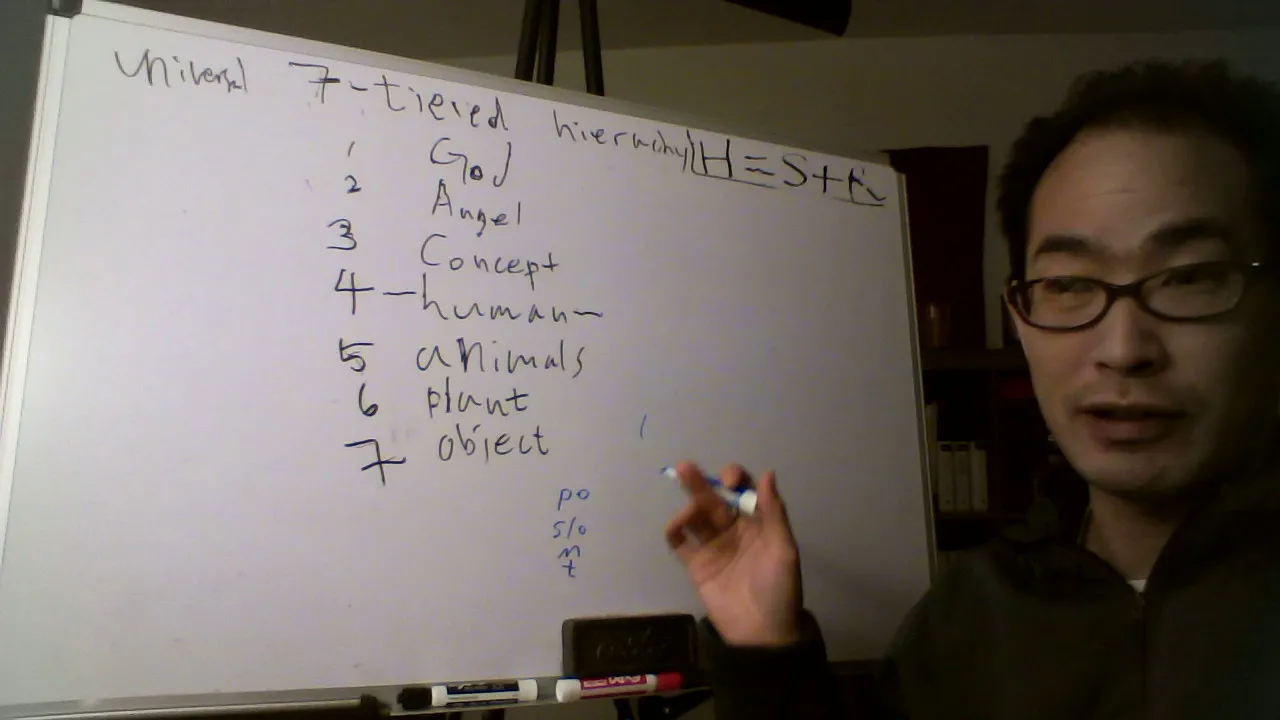 Universal 7-tiered hierarchy H=S+R
1 God
2 Angel
3 Concept
4 - human -
5 animals
6 plant
7 object
po
s/o
n
t